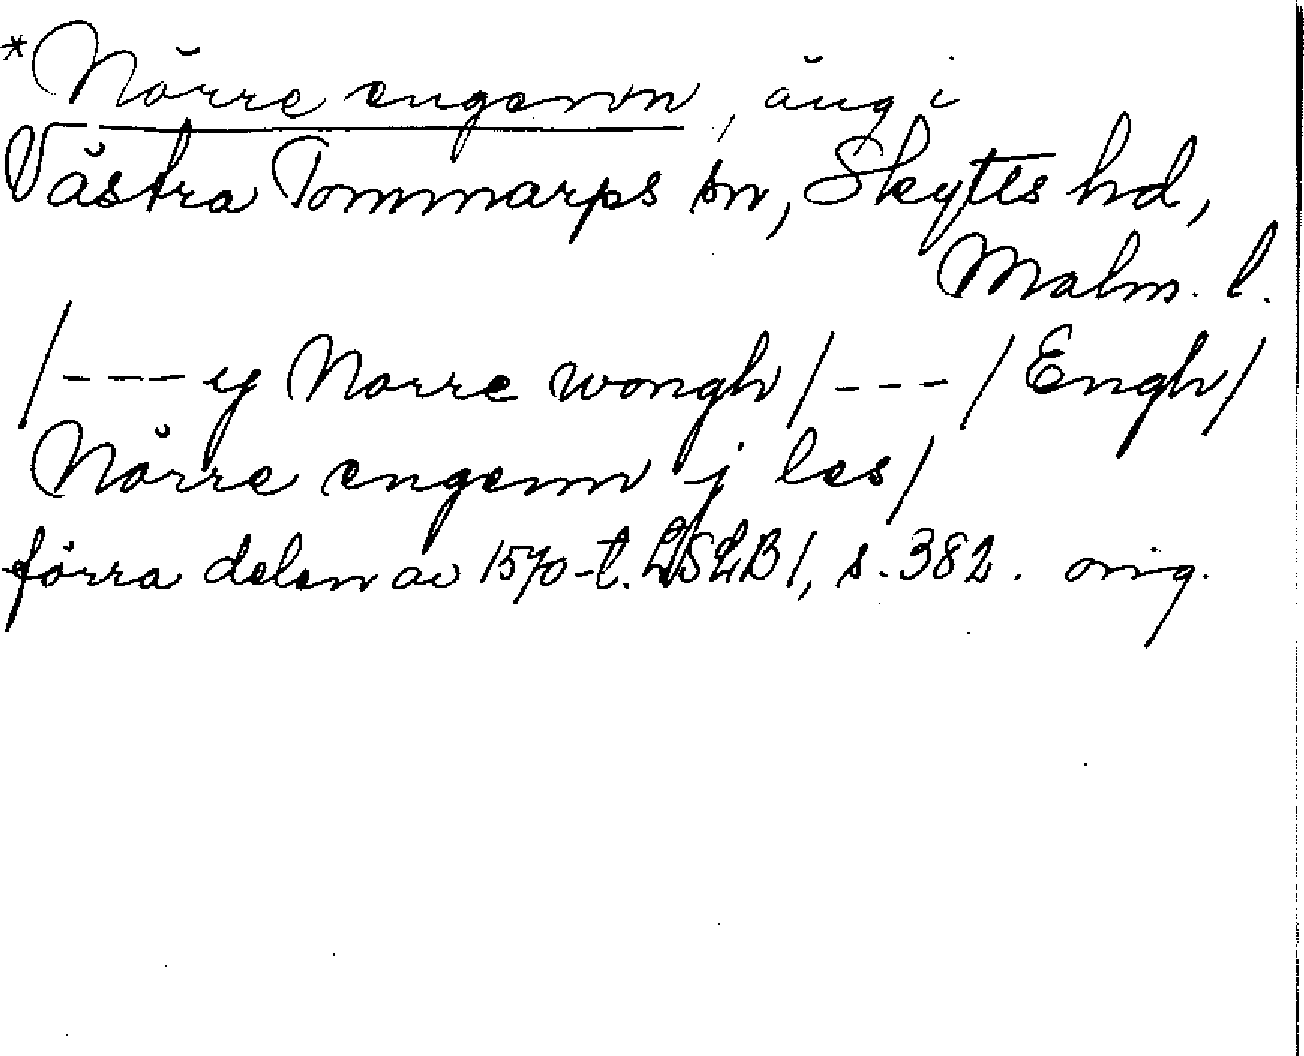 *Nörre engenn, äng i
Västra Tommarps sn, Skytts hd,
Malm. l.
/--- y Norre wongh /--- / Engh /
Nörre engenn j les /
förra delen av 1570-t. LSLB 1, s. 382. orig.